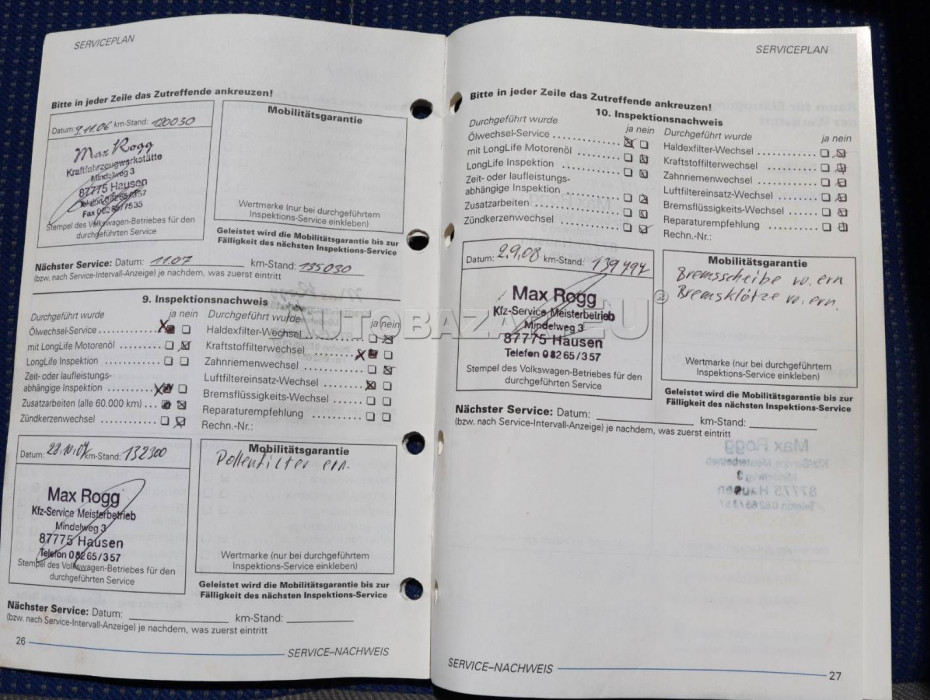 SERVICEPLAN
Bitte in jeder Zeile das Zutreffende ankreuzen!
Datum: 9.11.06 km-Stand: 120030
Max Rogg
Kraftfahrzeugwerkstätte
Mindelweg 3
87775 Hausen
Stempel des Volkswagen-Betriebes für den
durchgeführten Service
Mobilitätsgarantie
Wertmarke (nur bei durchgeführtem
Inspektions-Service einkleben)
Geleistet wird die Mobilitätsgarantie bis zur
Fälligkeit des nächsten Inspektions-Service
Nächster Service: Datum: 11.07 km-Stand: 135030
(bzw. nach Service-Intervall-Anzeige) je nachdem, was zuerst eintritt
9. Inspektionsnachweis
Durchgeführt wurde ja nein
Ölwechsel-Service
mit LongLife Motorenöl
LongLife Inspektion
Zeit- oder laufleistungs-
abhängige Inspektion
Zusatzarbeiten (alle 60.000 km)
Zündkerzenwechsel
Durchgeführt wurde ja nein
Haldexfilter-Wechsel
Kraftstoffilterwechsel
Zahnriemenwechsel
Luftfiltereinsatz-Wechsel
Bremsflüssigkeits-Wechsel
Reparaturempfehlung
Rechn.-Nr.:
Datum: km-Stand: 132300
Max Rogg
Kfz-Service Meisterbetrieb
Mindelweg 3
87775 Hausen
Telefon 08265/357
Stempel des Volkswagen-Betriebes für den
durchgeführten Service
Mobilitätsgarantie
Pollenfilter ern.
Wertmarke (nur bei durchgeführtem
Inspektions-Service einkleben)
Geleistet wird die Mobilitätsgarantie bis zur
Fälligkeit des nächsten Inspektions-Service
Nächster Service: Datum: km-Stand:
(bzw. nach Service-Intervall-Anzeige) je nachdem, was zuerst eintritt
26
SERVICE–NACHWEIS
SERVICEPLAN
Bitte in jeder Zeile das Zutreffende ankreuzen!
10. Inspektionsnachweis
Durchgeführt wurde ja nein
Ölwechsel-Service
mit LongLife Motorenöl
LongLife Inspektion
Zeit- oder laufleistungs-
abhängige Inspektion
Zusatzarbeiten
Zündkerzenwechsel
Durchgeführt wurde ja nein
Haldexfilter-Wechsel
Kraftstoffilterwechsel
Zahnriemenwechsel
Luftfiltereinsatz-Wechsel
Bremsflüssigkeits-Wechsel
Reparaturempfehlung
Rechn.-Nr.:
Datum: 2.9.08 km-Stand:
Max Rogg
Kfz-Service Meisterbetrieb
Mindelweg 3
87775 Hausen
Telefon 08265/357
Stempel des Volkswagen-Betriebes für den
durchgeführten Service
Mobilitätsgarantie
Bremsscheibe vo. ern
Bremsklötze vo. ern.
Wertmarke (nur bei durchgeführtem
Inspektions-Service einkleben)
Geleistet wird die Mobilitätsgarantie bis zur
Fälligkeit des nächsten Inspektions-Service
Nächster Service: Datum: km-Stand:
(bzw. nach Service-Intervall-Anzeige) je nachdem, was zuerst eintritt
SERVICE–NACHWEIS
27
AUTOBAZAR.EU